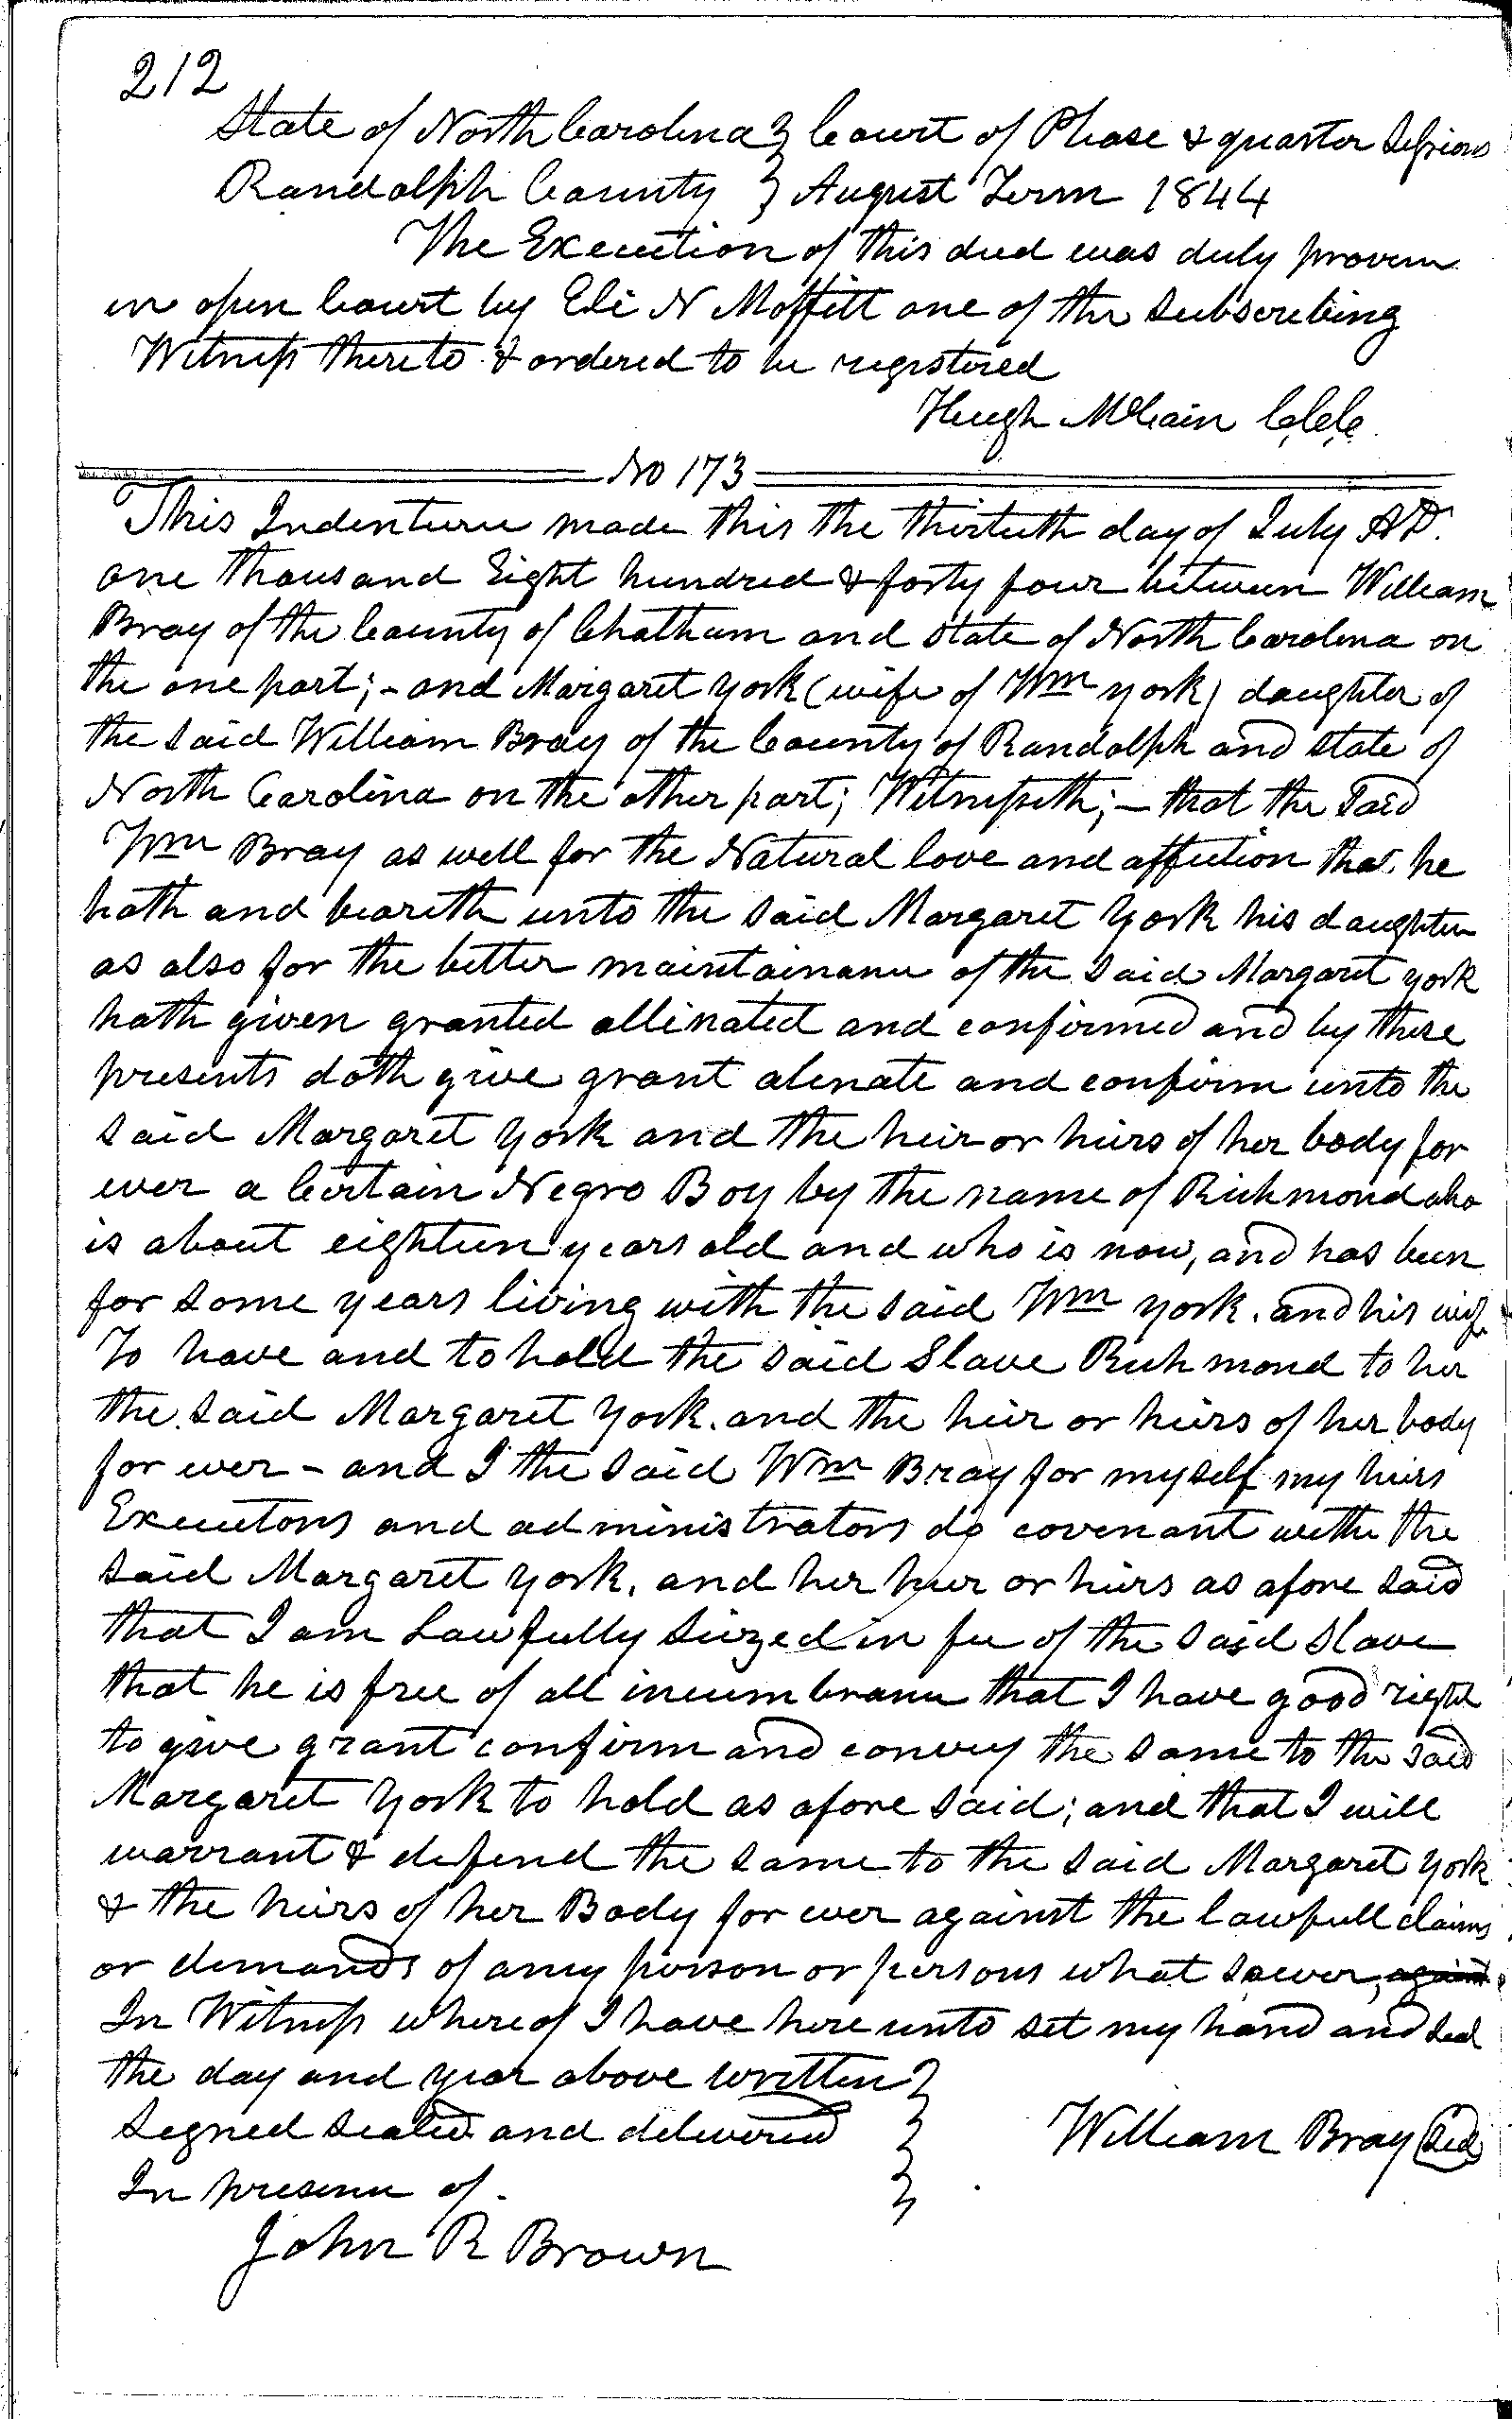 212
State of North Carolina } Court of Please & quarter Sessions
Randolph County } August Term 1844
The Execution of this deed was duly proven
in open Court by Eli N Moffitt one of the Subscribing
Witness thereto & ordered to be registered
Hugh McCain C.C.C.
No 173
This Indenture made this the thirtieth day of July A.D.
one thousand Eight hundred & forty four between William
Bray of the County of Chatham and State of North Carolina on
the one part; - and Margaret York (wife of Wm York) daughter of
the said William Bray of the County of Randolph and State of
North Carolina on the other part; Witnesseth; - that the said
Wm Bray as well for the Natural love and affection that he
hath and beareth unto the said Margaret York his daughter
as also for the better maintainance of the said Margaret York
hath given granted allinated and confirmed and by these
presents doth give grant alenate and confirm unto the
said Margaret York and the heir or heirs of her body for
ever a Certain Negro Boy by the name of Richmond who
is about eighteen years old and who is now, and has been
for some years living with the said Wm York. and his wife
To have and to hold the said Slave Richmond to her
the said Margaret York. and the heir or heirs of her body
for ever - and I the said Wm Bray for myself my heirs
Executors and administrators do covenant with the
said Margaret York, and her heir or heirs as afore said
that I am Lawfully Siezed in fee of the said Slave
that he is free of all incumbrance that I have good right
to give grant confirm and convey the same to the said
Margaret York to hold as afore said; and that I will
warrant & defend the same to the said Margaret York
& the heirs of her Body for ever against the lawfull claims
or demands of any person or persons what soever, against
In Witness whereof I have here unto set my hand and seal
the day and year above written }
Signed sealed and delivered }
William Bray (Seal)
In presence of. }
John R Brown